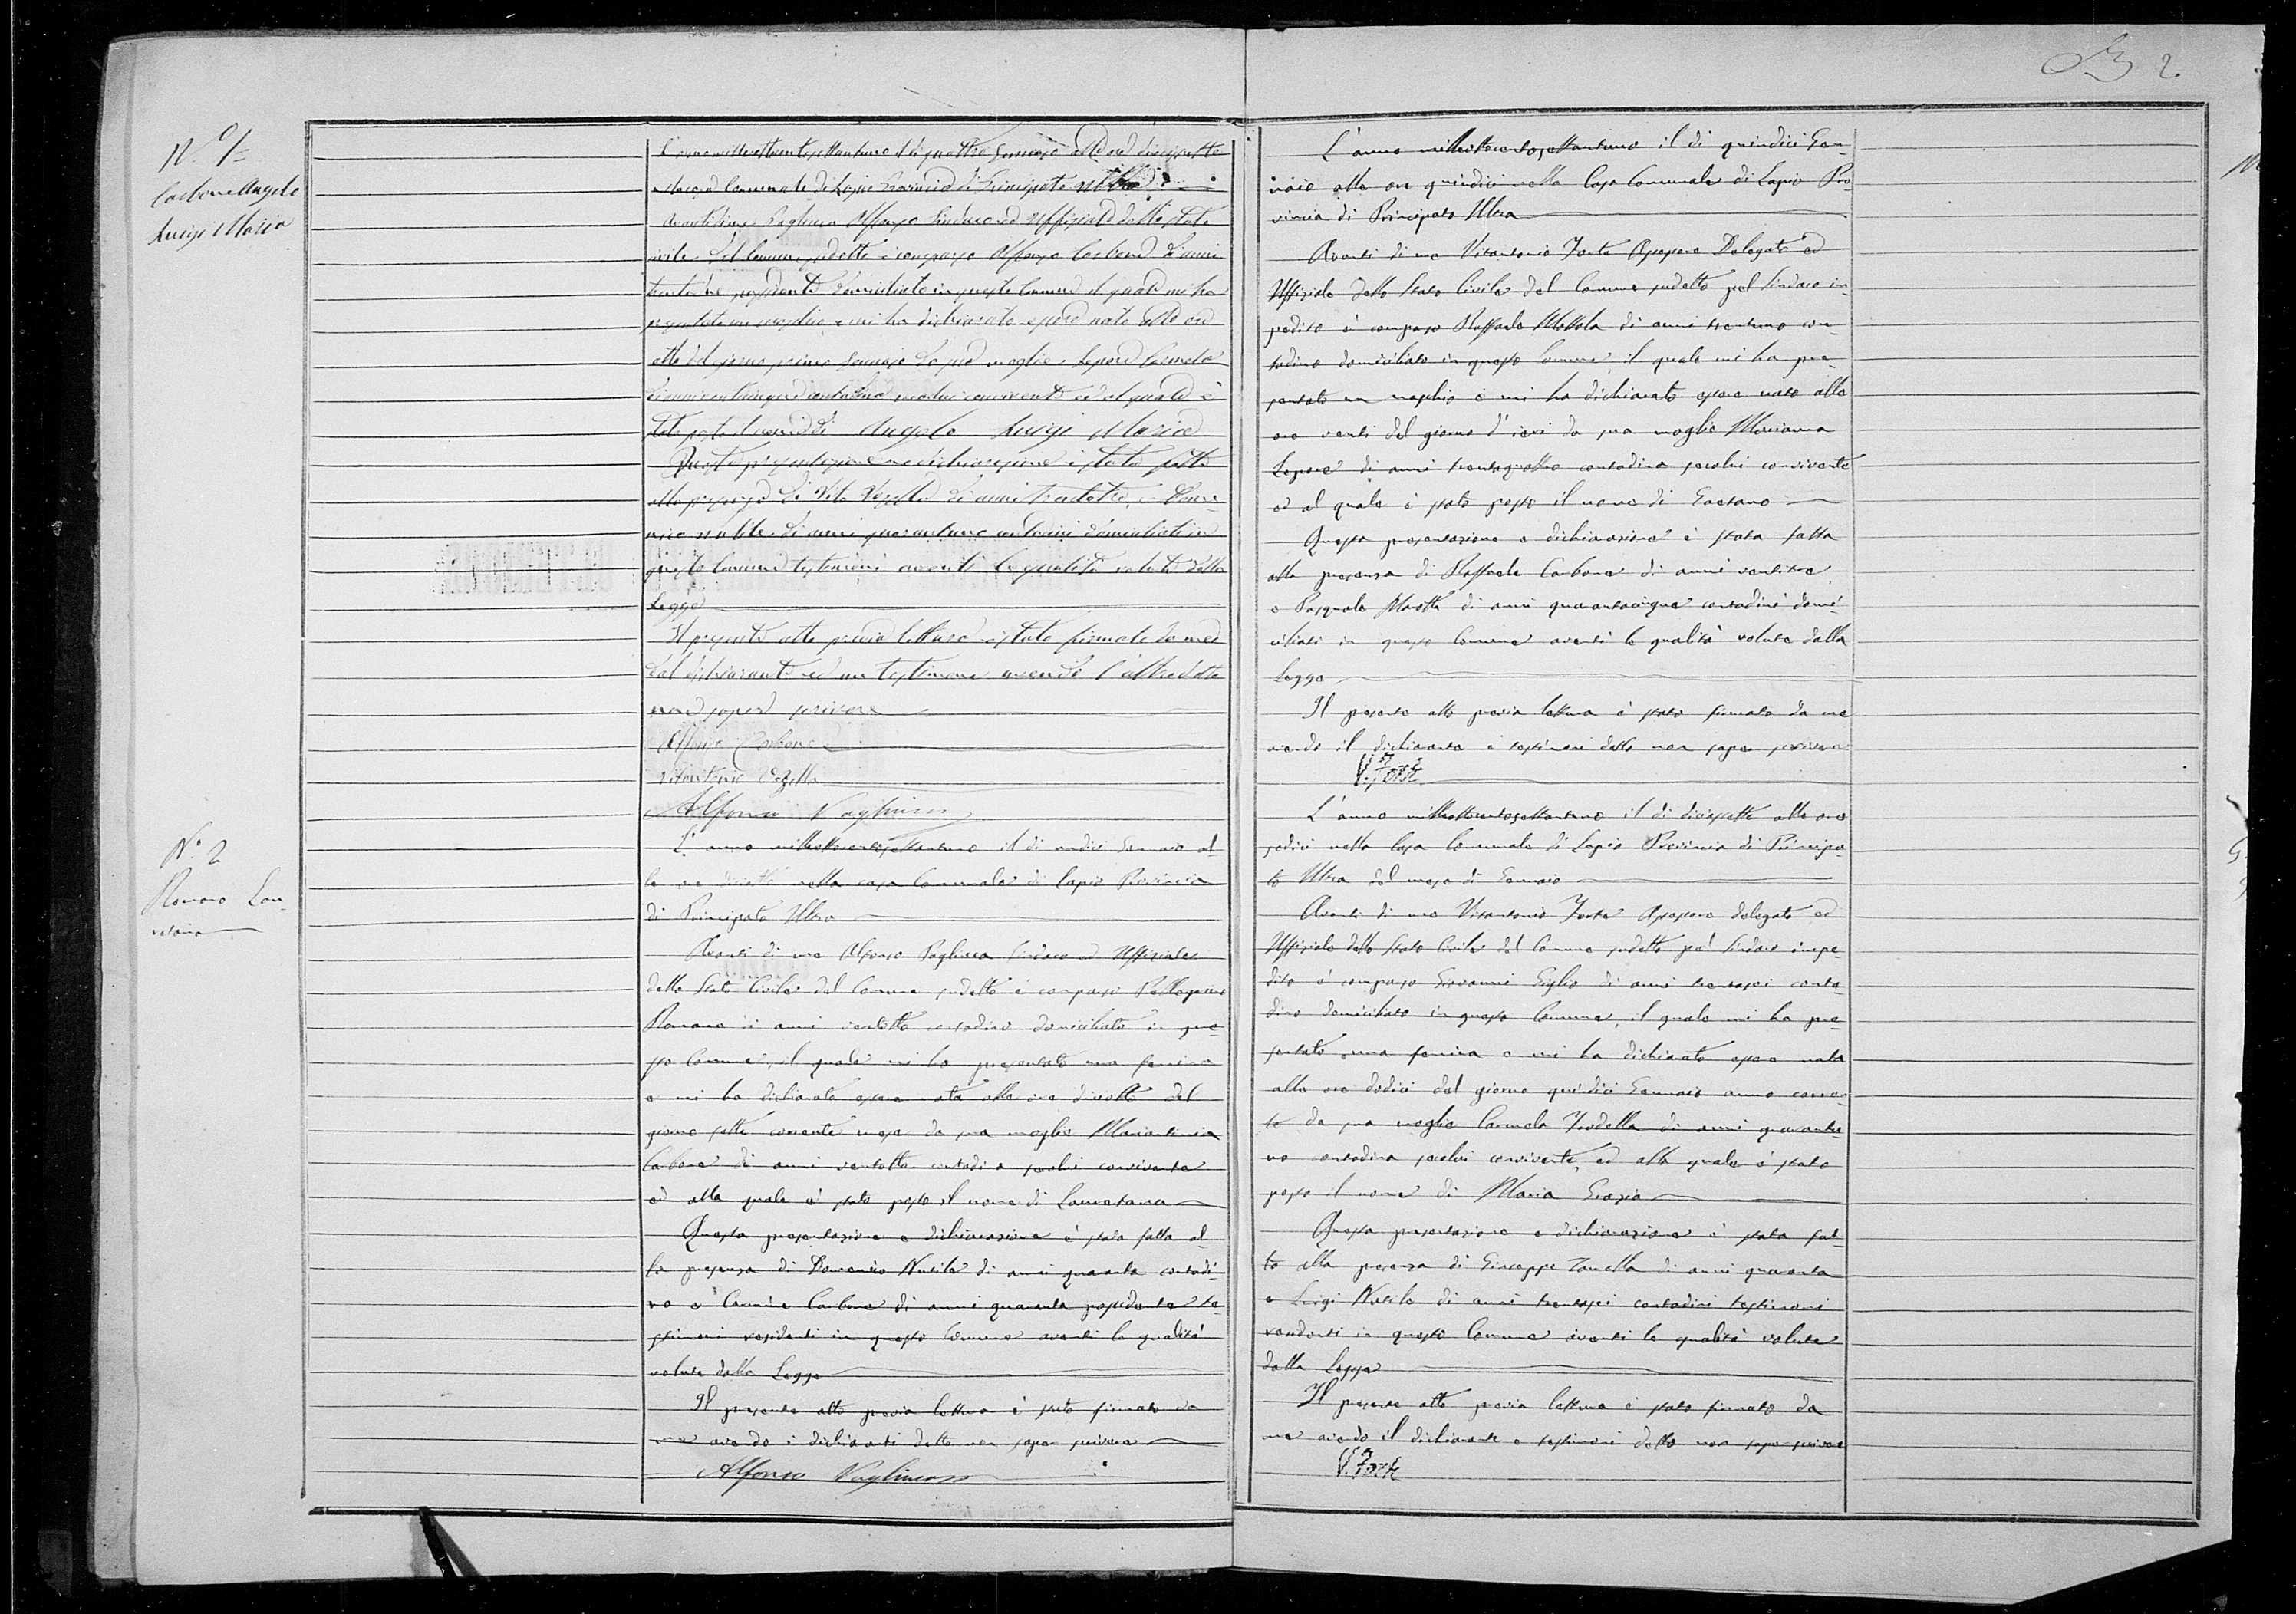 2
N.° 1
Carbone Angelo
Luigi Maria
L'anno milleottocentosettantuno il dì quattro Gennajo alle ore diciassette
Casa Comunale di Lapio Provincia di Principato Ultra
Avanti di me Pagliuca Alfonso Sindaco ed Uffiziale dello stato
civile del Comune sudetto è comparso Alfonso Carbone di anni
possidente domiciliato in questo Comune il quale mi ha
presentato un maschio e mi ha dichiarato essere nato alle ore
otto del giorno primo Gennajo da sua moglie Lepore Carmela
di anni venticinque contadina secolui convivente ed al quale è
stato posto il nome di Angelo Luigi Maria
Questa presentazione e dichiarazione è stata fatta
alla presenza di Vito Vozella di anni e Dome-
nico Nubile di anni quarantuno contadini domiciliati in
questo Comune testimoni aventi le qualità volute dalla
Legge
Il presente atto previa lettura è stato firmato da me
dal dichiarante ed un testimone avendo l'altro detto
non sapere scrivere
Alfonso Carbone
Alfonso Pagliuca
N.° 2
Romano Lau-
retana
L'anno milleottocentosettantuno il dì undici Gennaio al-
le ore diciotto nella casa Comunale di Lapio Provincia
di Principato Ultra
Avanti di me Alfonso Pagliuca Sindaco ed Uffiziale
dello Stato Civile del Comune sudetto è comparso Pellegrino
Romano di anni ventotto contadino domiciliato in que-
sto Comune, il quale mi ha presentato una femina
e mi ha dichiarato essere nata alle ore diciotto del
giorno sette corrente mese da sua moglie Mariantonia
Carbone di anni ventotto contadina secolui convivente
ed alla quale è stato posto il nome di Lauretana
Questa presentazione e dichiarazione è stata fatta al-
la presenza di Domenico Nubile di anni quaranta contadi-
no e Carmine Carbone di anni quaranta possidente te-
stimoni residenti in questo Comune aventi le qualità
volute dalla Legge
Il presente atto previa lettura è stato firmato da
me avendo i dichiaranti detto non saper scrivere
Alfonso Pagliuca
L'anno milleottocentosettantuno il dì quindici Gen-
naio alle ore quindici nella Casa Comunale di Lapio Pro-
vincia di Principato Ultra
Avanti di me Vitantonio Forte Assessore Delegato ed
Uffiziale dello Stato Civile del Comune sudetto pel Sindaco im-
pedito è comparso Raffaele Mottola di anni trentuno con-
tadino domiciliato in questo Comune, il quale mi ha pre-
sentato un maschio e mi ha dichiarato essere nato alle
ore venti del giorno d'ieri da sua moglie Marianna
Lepore di anni trentaquattro contadina secolui convivente
ed al quale è stato posto il nome di Gaetano
Questa presentazione e dichiarazione è stata fatta
alla presenza di Raffaele Carbone di anni ventitre
e Pasquale Miotti di anni quarantacinque contadini domi-
ciliati in questo Comune aventi le qualità volute dalla
Legge
Il presente atto previa lettura è stato firmato da me
avendo il dichiarante e testimoni detto non saper scrivere
V. Forte
L'anno milleottocentosettantuno il dì diciassette alle ore
sedici nella Casa Comunale di Lapio Provincia di Principa-
to Ultra del mese di Gennaio
Avanti di me Vitantonio Forte Assessore delegato ed
Uffiziale dello Stato Civile del Comune sudetto pel Sindaco impe-
dito è comparso Giovanni Giglio di anni trentasei conta-
dino domiciliato in questo Comune, il quale mi ha pre-
sentato una femina e mi ha dichiarato essere nata
alle ore dodici del giorno quindici Gennaio anno corren-
te da sua moglie Carmela Trodella di anni quarantu-
no contadina secolui convivente, ed alla quale è stato
posto il nome di Maria Grazia
Questa presentazione e dichiarazione è stata fat-
ta alla presenza di Giuseppe Zarrella di anni quaranta
e Luigi Nubile di anni trentasei contadini testimoni
residenti in questo Comune aventi le qualità volute
dalla Legge
Il presente atto previa lettura è stato firmato da
me avendo il dichiarante e testimoni detto non saper scrivere
V. Forte